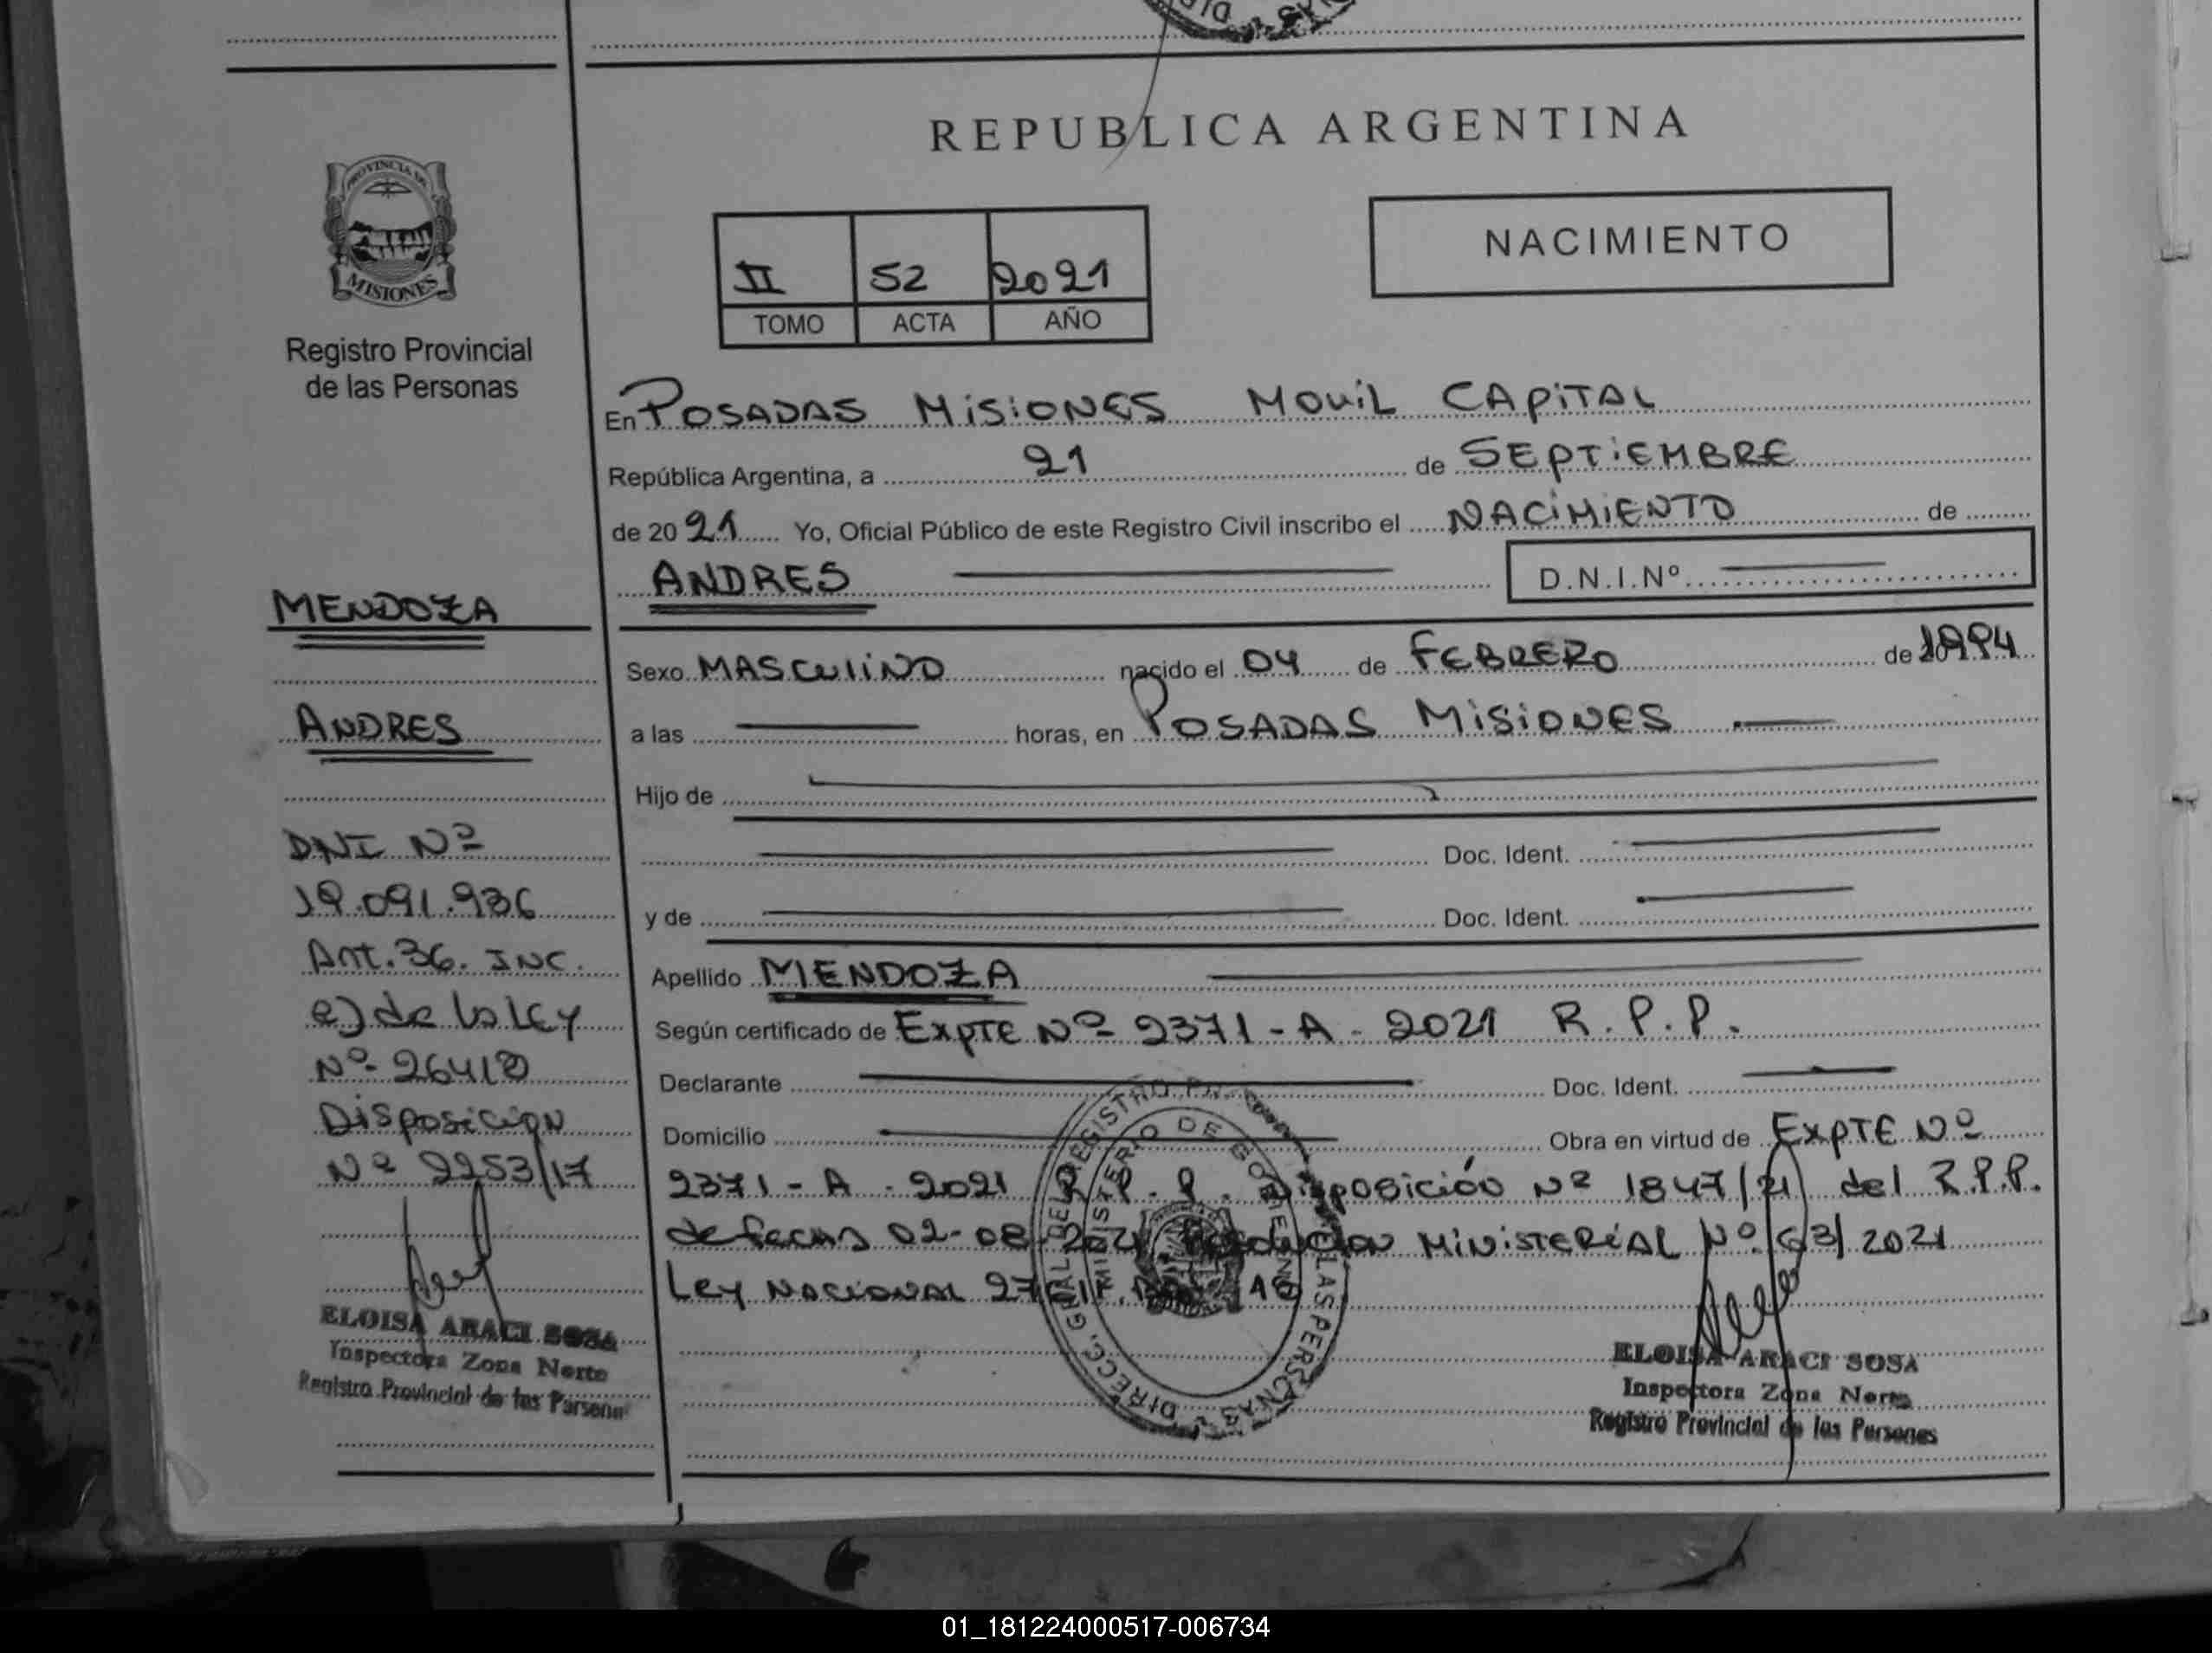 REPUBLICA ARGENTINA
PROVINCIA DE
MISIONES
Registro Provincial
de las Personas
NACIMIENTO
II 52 2021
TOMO ACTA AÑO
En POSADAS MISIONES MOVIL CAPITAL
República Argentina, a 21 de SEPTIEMBRE
de 2021 Yo, Oficial Público de este Registro Civil inscribo el NACIMIENTO de
ANDRES D.N.I.Nº
Sexo MASCULINO nacido el 04 de FEBRERO de 1994
a las horas, en POSADAS MISIONES
Hijo de
Doc. Ident.
y de Doc. Ident.
Apellido MENDOZA
Según certificado de EXPTE Nº 2371-A-2021 R.P.P.
Declarante Doc. Ident.
Domicilio Obra en virtud de EXPTE Nº
2371-A-2021 R.P.P. Disposición Nº 1847/21 del R.P.P.
de fecha 02-08-2021 MINISTERIAL Nº 63/2021
LEY NACIONAL
MENDOZA
ANDRES
DNI Nº
19.091.936
Art. 36. INC.
e) de la LEY
Nº 26413
DISPOSICION
Nº 2253/17
ELOISA ARACI SOSA
Inspectora Zona Norte
Registro Provincial de las Personas
DIRECC. GRAL DE REGISTRO LAS PERSONAS
MINISTERIO DE GOBIERNO
ELOISA ARACI SOSA
Inspectora Zona Norte
Registro Provincial de las Personas
01_181224000517-006734